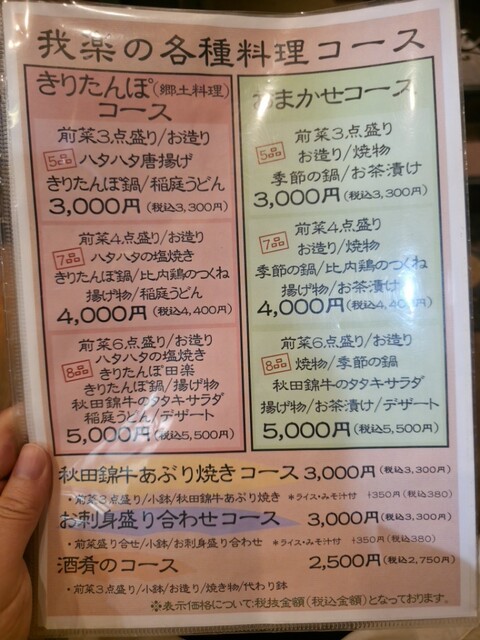 我楽の各種料理コース
きりたんぽ(郷土料理)
コース
前菜3点盛り/お造り
5品 ハタハタ唐揚げ
きりたんぽ鍋/稲庭うどん
3,000円(税込3,300円)
前菜4点盛り/お造り
7品 ハタハタの塩焼き
きりたんぽ鍋/比内鶏のつくね
揚げ物/稲庭うどん
4,000円(税込4,400円)
前菜6点盛り/お造り
ハタハタの塩焼き
8品 きりたんぽ田楽
きりたんぽ鍋/揚げ物
秋田錦牛のタタキサラダ
稲庭うどん/デザート
5,000円(税込5,500円)
おまかせコース
前菜3点盛り
5品 お造り/焼物
季節の鍋/お茶漬け
3,000円(税込3,300円)
前菜4点盛り
7品 お造り/焼物
季節の鍋/比内鶏のつくね
揚げ物/お茶漬け
4,000円(税込4,400円)
前菜6点盛り/お造り
8品 焼物/季節の鍋
秋田錦牛のタタキサラダ
揚げ物/お茶漬け/デザート
5,000円(税込5,500円)
秋田錦牛あぶり焼きコース 3,000円(税込3,300円)
・前菜3点盛り/小鉢/秋田錦牛あぶり焼き *ライス・みそ汁付 +350円(税込380)
お刺身盛り合わせコース 3,000円(税込3,300円)
・前菜盛り合せ/小鉢/お刺身盛り合わせ *ライス・みそ汁付 +350円(税込380)
酒肴のコース 2,500円(税込2,750円)
・前菜3点盛り/小鉢/お造り/焼き物/代わり鉢
※表示価格について税抜金額(税込金額)となっております。